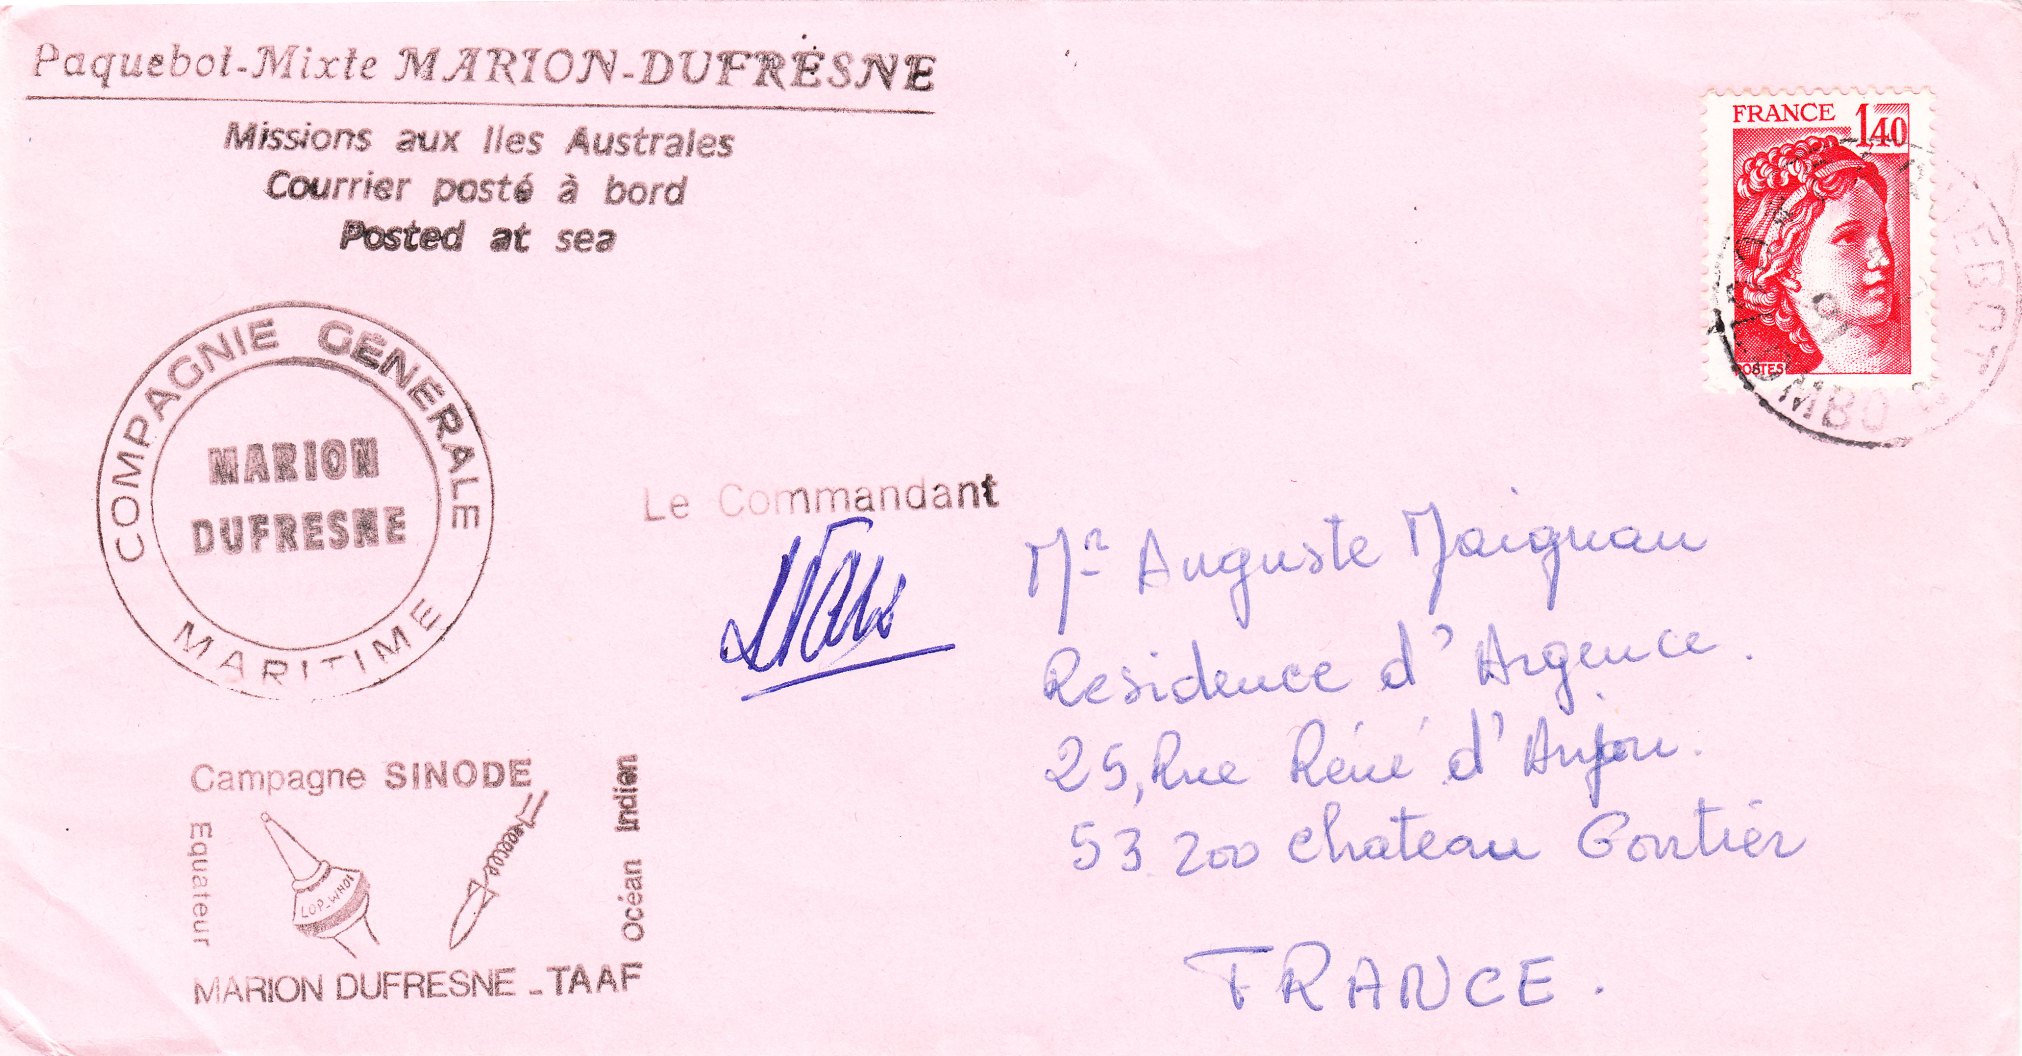 Paquebot-Mixte MARION-DUFRESNE
Missions aux Iles Australes
Courrier posté à bord
Posted at sea
FRANCE 1,40
POSTES
COMPAGNIE GÉNÉRALE
MARITIME
MARION
DUFRESNE
Le Commandant
Mr Auguste Maignan
Residence d'Argence.
25, Rue Réné d'Anjou.
53 200 Chateau Gontier
FRANCE.
Campagne SINODE
Equateur
LOP-WHOI
Océan Indien
MARION DUFRESNE - TAAF